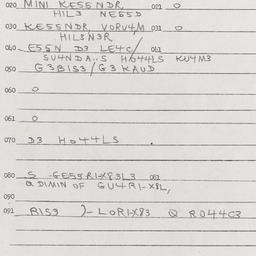 020 MINI KE55NDR, 021 O
HIL3 NE55D
030 KE55NDR VORU4M 031 O
HIL3N3R
040 E55N D3 LE4C/ 061
SU4NDA..S HO44LS KU4M3
050 G3BIS3/G3KAUD
060 O
061 O
070 D3 HO44LS .
080 S -GE55RIX83L3 081
A DIMIN OF GU4RI-X8L,
090
091 RIS3 )-LORIX83 Q RO44C3